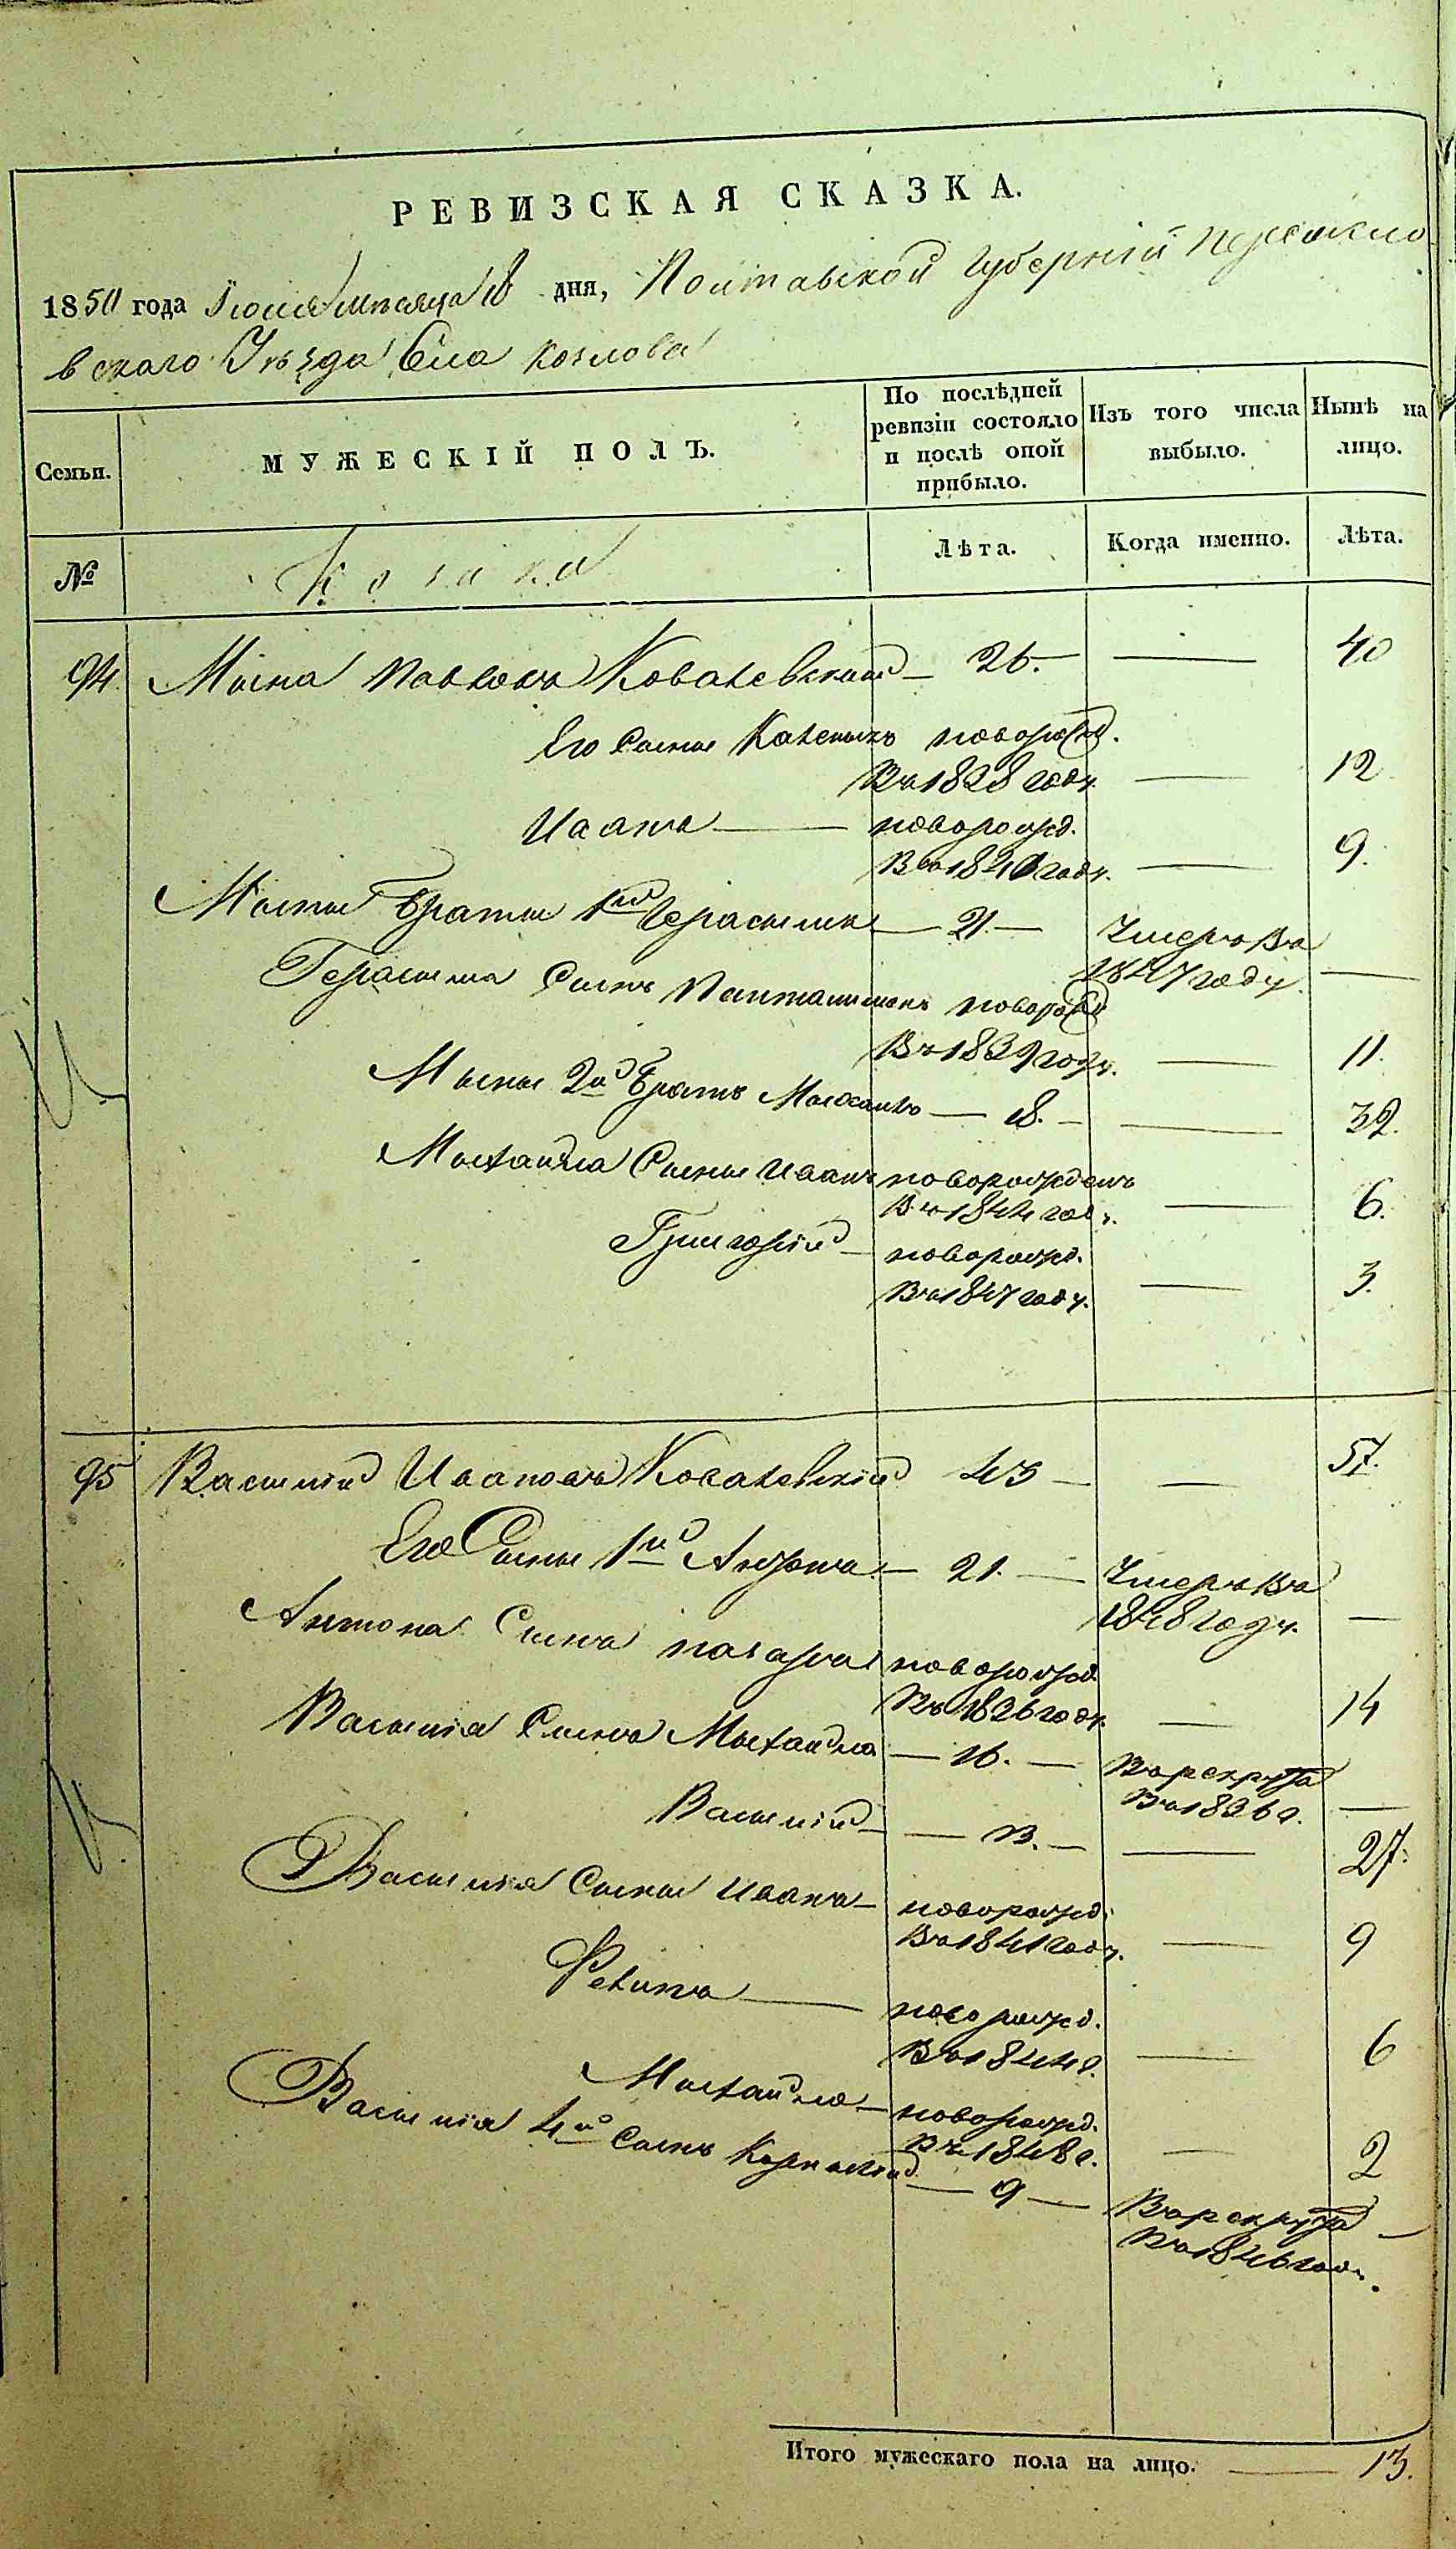 РЕВИЗСКАЯ СКАЗКА.
1850 года Іюля мѣсяца 18 дня, Полтавской Губерніи Переясло
вскаго Уѣзда Села Козлова
Семьи.
МУЖЕСКІЙ ПОЛЪ.
По послѣдней ревизіи состояло и послѣ оной прибыло.
Изъ того числа выбыло.
Нынѣ на лицо.
№
Козаки
Лѣта.
Когда именно.
Лѣта.
94. Мина Павловъ Ковалевскій — 26. — — 40
Его Сыны Каленикъ новорожд.
Въ 1838 году. — 12
Иванъ — новорожд.
въ году. — 9.
Мины Братья 1й Герасимъ — 21. — Умеръ въ
1847 году. —
Герасима Сынъ Панталимонъ новорожд
Въ 1839 году. — 11.
Мины 2й Братъ — 18. — — 32.
Михайла Сыны Иванъ новорожденъ
Въ 1844 году. — 6.
Григорій — новорожд.
Въ 1847 году. — 3.
95 Василій Ивановъ Ковалевскій 43 — — 57.
Его Сыны 1й — 21. — Умеръ въ
1848 году. —
Антона Сынъ новорожд.
Въ 1836 году. — 14
Василія Сынъ Михайла — 16. — В рекруты
Въ 1836 г. —
Василій — 13. — — 27.
Василія Сыны Иванъ — новорожд.
Въ 1841 году. — 9
Филипъ — новорожд.
Въ 1844 г. — 6
Михайло — новорожд.
Въ 1848 г. — 2
Василія 4й Сынъ Корнилій — 9 — В рекруты —
Въ 1846 году.
Итого мужескаго пола на лицо. — 13.